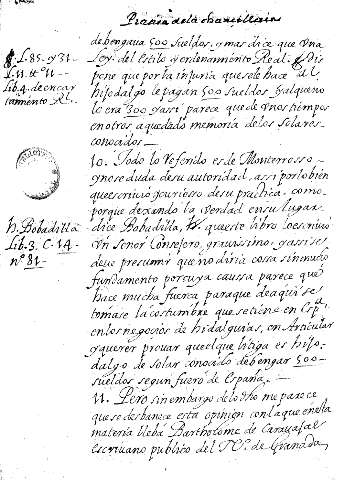 Pratica de la chancilleria
debengaua 500 sueldos. y mas dice que vna
Ley. del Estilo y ordenamiento Real. Dis
pone que por la injuria que se le hace al
hijodalgo le pagan 500 sueldos y al que no
lo era 300 y assi parece que de vnos tiempos
en otros a quedado memoria de los solares
conocidos
L. 85. y 31
L. 11. tt.º 11
Lib. 4. de encar
tamiento RL.
10. Todo lo referido es de Monterroso
y no se duda de su autoridad, assi por lo bien
que escriuio y curiosso de su practica, como
porque dexando la verdad en su lugar
dice Bobadilla, que este libro lo escriuio
vn Señor Consejero, grauissimo, y assi se
deue presumir que no diria cosa sin mucho
fundamento por cuya caussa parece que
hace mucha fuerza para que de aqui se
tomase la costumbre que se tiene en Espª
en los negocios de hidalguias, en Articular
y querer prouar que el que litiga es hijo
dalgo de solar conocido debengar 500
sueldos segun fuero de España.
N. Bobadilla
Lib. 3. C. 14
nº 81
11. Pero sin embargo de lo dho me parece
que se desbanece esta opinion con la que en esta
materia lleba Bartholome de Carauajal
escriuano publico del nº. de Granada